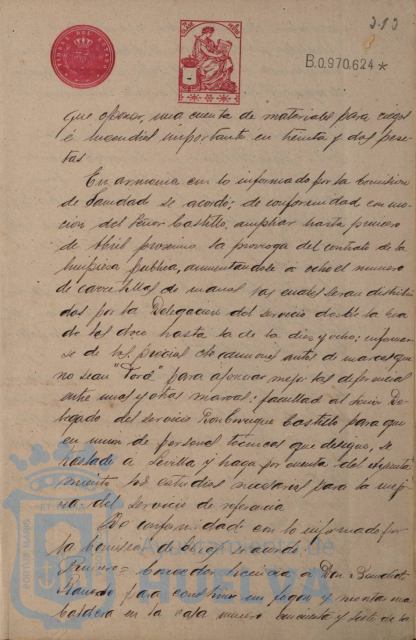 313
B.0.970.624*
que oponer, una cuenta de materiales para riegos
é incendios importante en treinta y dos pese
tas
En armonia con lo informado por la Comision
de Sanidad se acordó; de conformidad con mo
cion del Señor Castillo, ampliar hasta primero
de Abril proximo la prorroga del contrato de la
limpieza publica, aumentandose a ocho el numero
de carretillas de mano las cuales seran distribui
das por la Delegacion del servicio desde la
de las doce hasta la de las diez y ocho;
de los precios de camiones autos de marcas que
no sean "Ford" para apreciar mejor las diferencias
entre unas y otras marcas; facultad al Señor De
legado del servicio Don Enrique Castillo para que
en union de personal tecnico que designe, se
traslade á Sevilla y haga por cuenta del
los estudios necesarios para la mejo
ra del servicio de referencia
De conformidad con lo informado por
la Comision de Obras se acordó
Primero= Conceder licencia a Don
para construir un fogon y
caldera en la casa numero cincuenta y siete de la
Ayuntamiento de
HUELVA